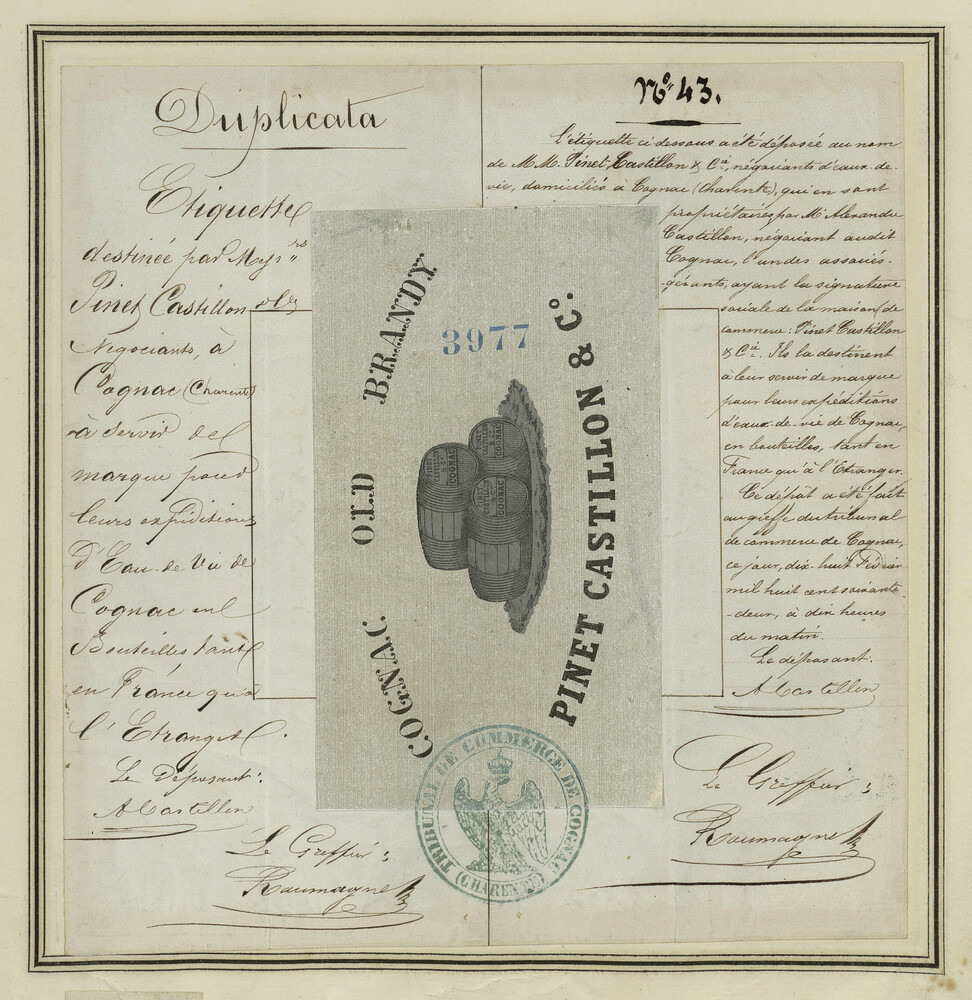 Duplicata
Etiquette
destinée par Mess.rs
Pinet Castillon & Cie
Negociants, à
Cognac (Charente)
à servir de
marque pour
leurs expéditions
d'Eau-de-Vie de
Cognac en
Bouteilles tant
en France qu'à
l'Etranger.
Le déposant:
A Castillon
Le Greffier:
Roumagne
No 43.
L'étiquette ci-dessous a été déposée au nom
de M.M. Pinet, Castillon & Cie, négociants d'eaux-de-
vie, domiciliés à Cognac (Charente), qui en sont
propriétaires, par Mr Alexandre
Castillon, négociant audit
Cognac, l'un des associés-
gérants, ayant la signature
sociale de la maison de
commerce: Pinet Castillon
& Cie. Ils la destinent
à leur servir de marque
pour leurs expéditions
d'eaux-de-vie de Cognac,
en bouteilles, tant en
France qu'à l'Etranger.
Ce dépôt a été fait
au greffe du tribunal
de commerce de Cognac,
ce jour, dix-huit Février
mil huit cent soixante
-deux, à dix heures
du matin.
Le déposant:
A Castillon
Le Greffier:
Roumagne
COGNAC OLD BRANDY
3977
PINET CASTILLON & Co.
PINET
CASTILLON
& Co
COGNAC
PINET
CASTILLON
& Co
COGNAC
PINET
CASTILLON
& Co
COGNAC
TRIBUNAL DE COMMERCE DE COGNAC
(CHARENTE)